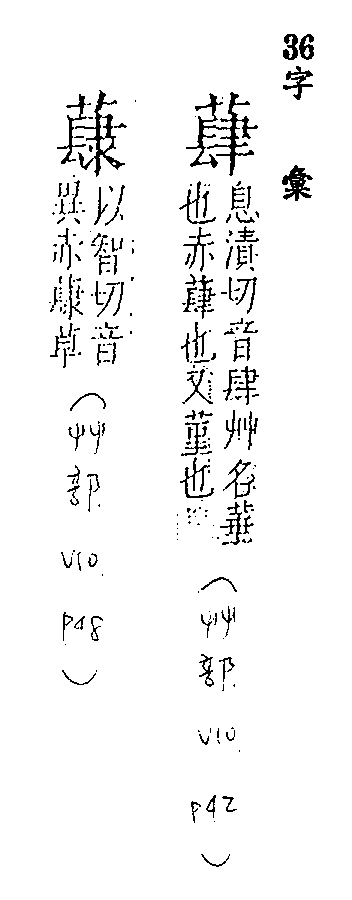 36字彙
蕼
息漬切音肆艸名
也赤蕼也又堇也
（艸部 V10 P42）
以智切音
異赤草
（艸部 V10 P48）